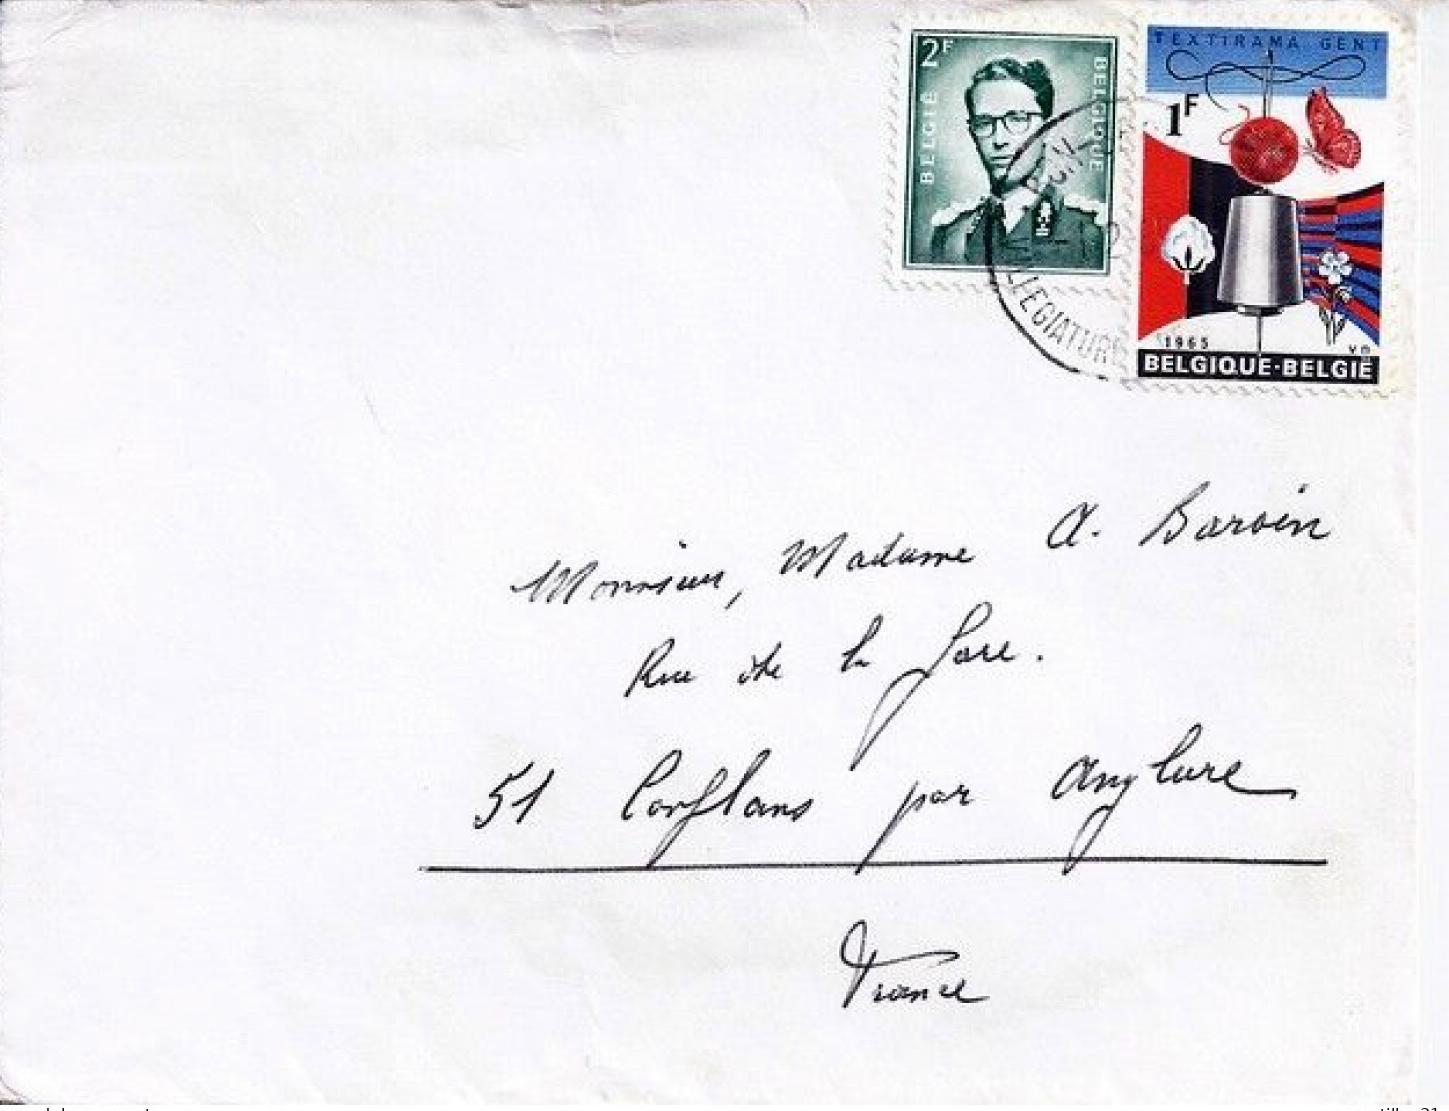 2F
BELGIË
BELGIQUE
TEXTIRAMA GENT
1F
1965
BELGIQUE·BELGIË
Monsieur, Madame A. Baroin
Rue de la Gare.
51 Conflans par Anglure
France